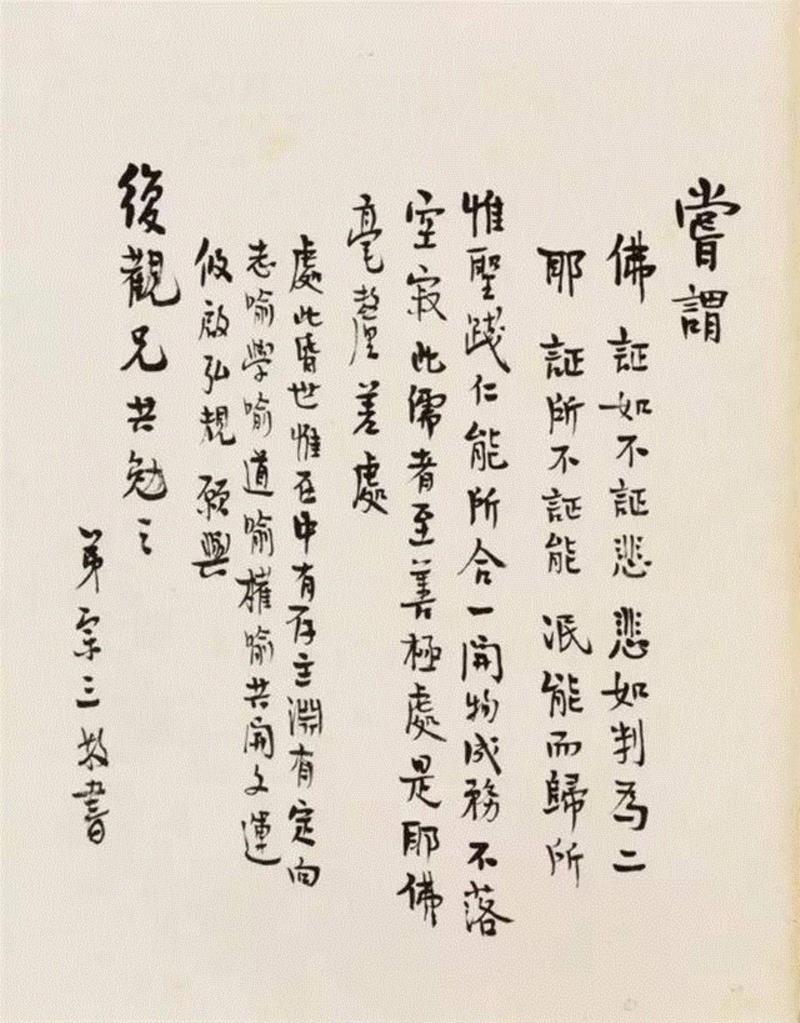 嘗謂
佛 証如不証悲 悲如判為二
耶 証所不証能 泯能而歸所
惟聖踐仁能所合一開物成務不落
空寂此儒者至善極處是耶佛
毫釐差處
處此昏世惟在中有存主淵有定向
志喻學喻道喻權喻共開文運
攸啟弘規 願與
復觀兄共勉之
弟宗三敬書